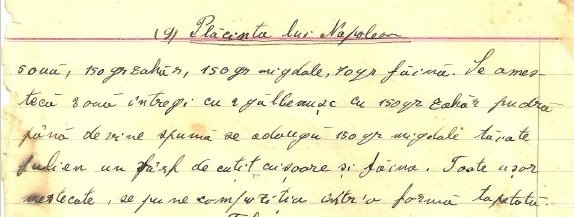 19) Plăcinta lui Napoleon
5 ouă, 150 gr zahăr, 150 gr migdale, 70 gr făină. Se ames-
tecă 3 ouă întregi cu 2 gălbenușe cu 150 gr zahăr pudră
până devine spumă se adaugă 150 gr migdale tăiate
julien un vârf de cuțit cuișoare și făina. Toate ușor
mestecate, se pune compoziția într'o formă tapetată.